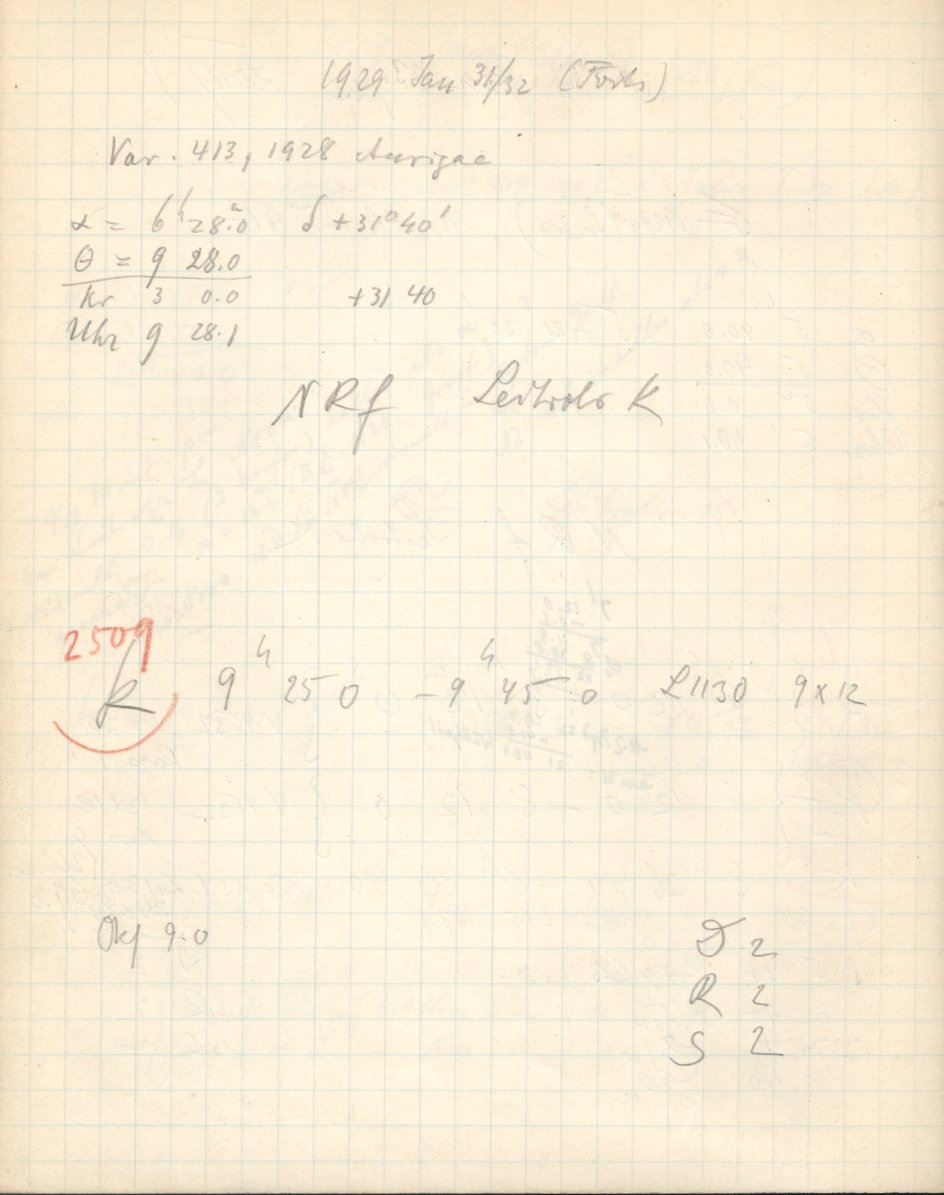 1929 Jan 31/32 (Forts.)
Var. 413, 1928 Aurigae
α = 6ʰ 28.0 δ +31° 40'
θ = 9 28.0
kr 3 0.0 +31 40
Uhr 9 28.1
N R f Leitrohr K
2509
K 9ʰ 25 0 – 9ʰ 45 0 L 1130 9 x 12
Okf 9.0
D 2
R 2
S 2